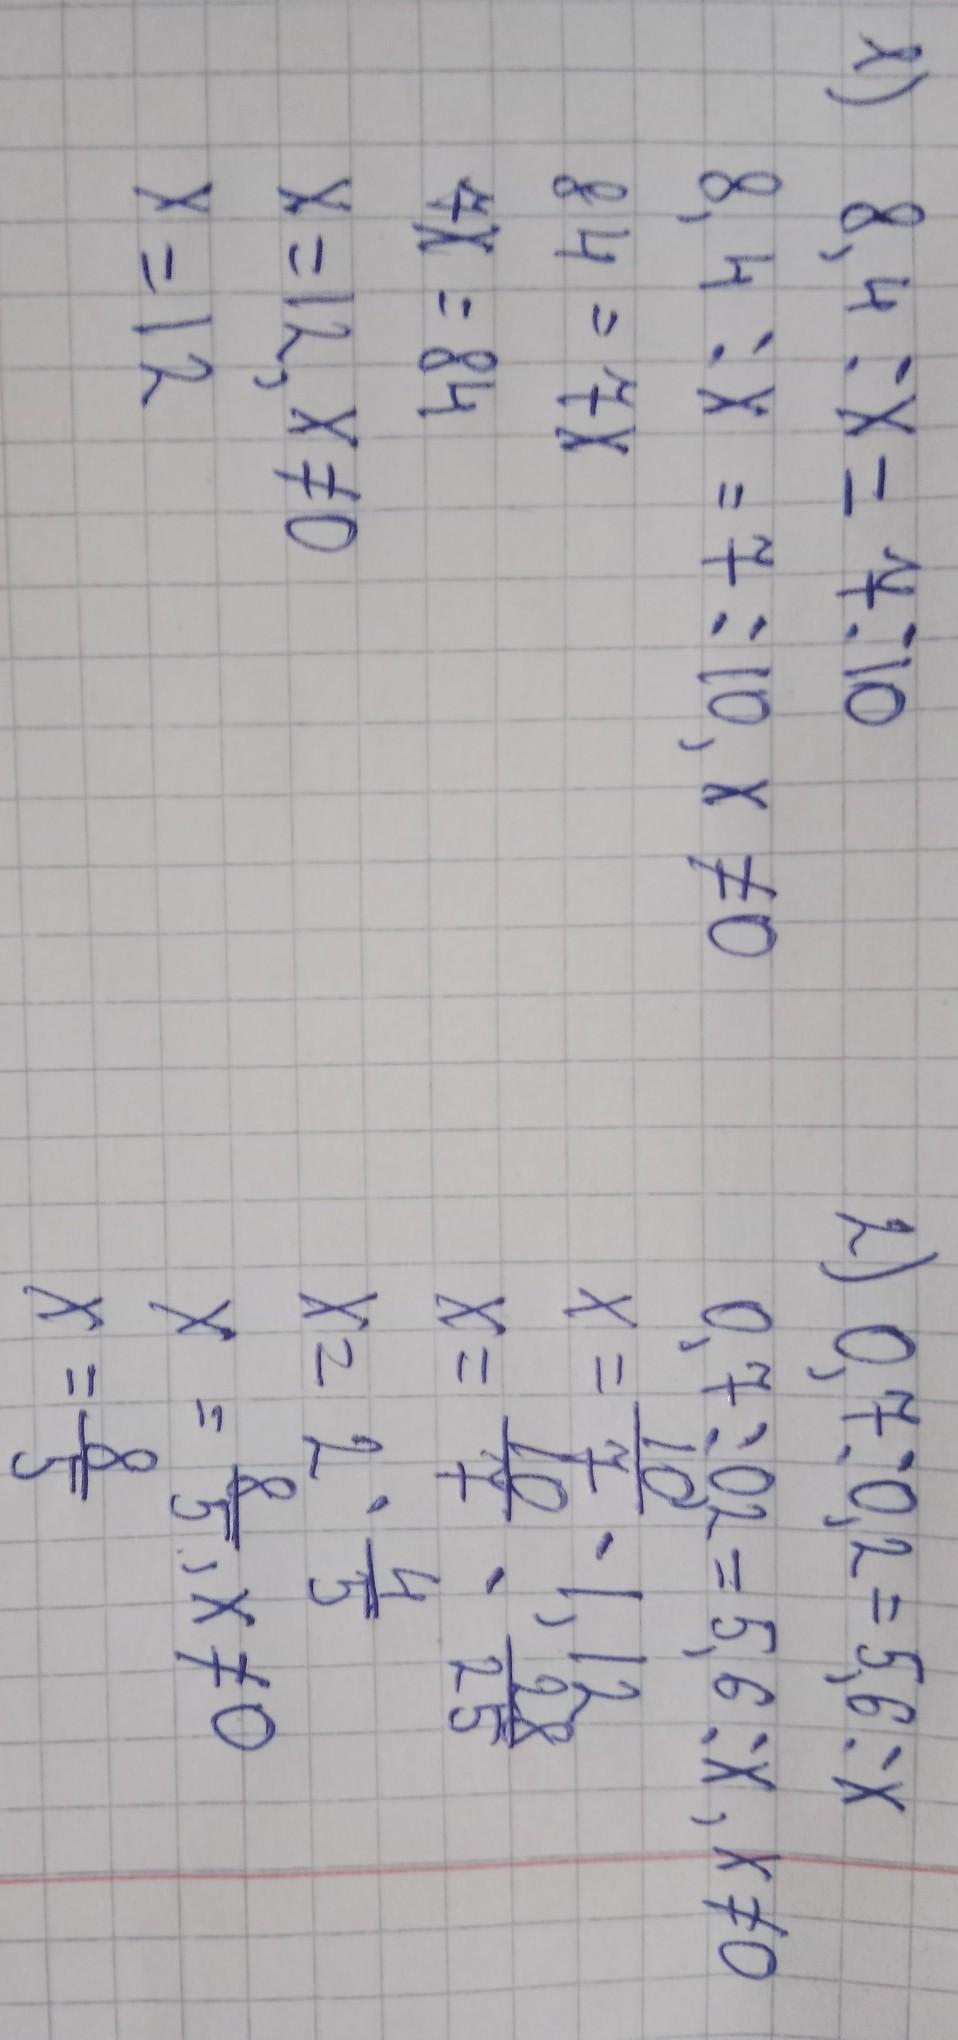 1) 8,4:x=7:10
8,4:x=7:10, x≠0
84=7x
7x=84
x=12, x≠0
x=12
2) 0,7:0,2=5,6:x
0,7:02=5,6:x, x≠0
x=10/7·1,12
x=10/7·28/25
x=2·4/5
x=8/5, x≠0
x=8/5